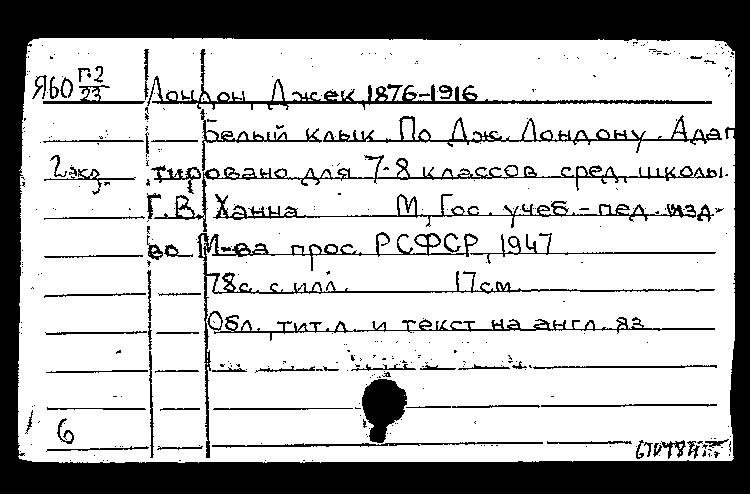 Я60 Г-2/23 Лондон, Джек, 1876-1916
Белый клык. По Дж. Лондону. Адап
2 экз. тировано для 7-8 классов сред. школы
Г.В. Ханна М., Гос. учеб.-пед. изд-
во М-ва прос. РСФСР, 1947
78с. с илл. 17см.
Обл., тит.л. и текст на англ. яз
6